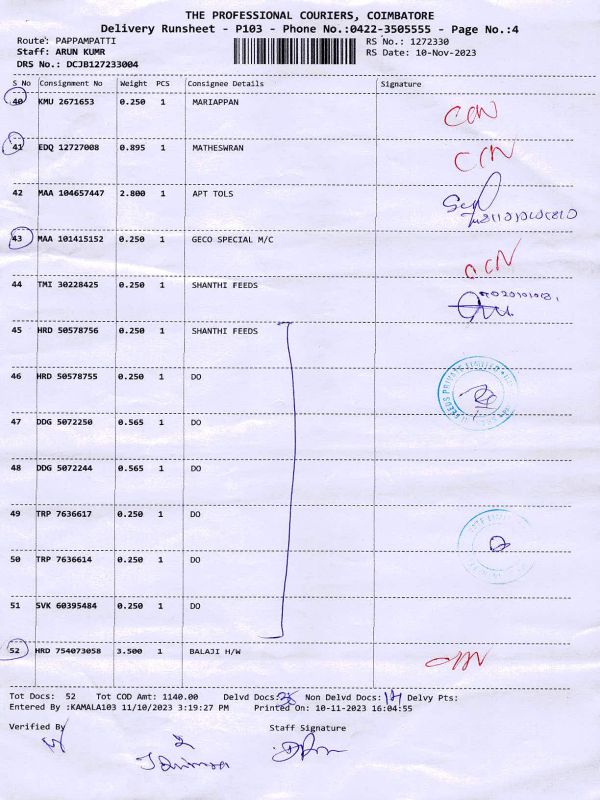 THE PROFESSIONAL COURIERS, COIMBATORE
Delivery Runsheet - P103 - Phone No.:0422-3505555 - Page No.:4
Route: PAPPAMPATTI RS No.: 1272330
Staff: ARUN KUMR RS Date: 10-Nov-2023
DRS No.: DCJB127233004
S No Consignment No Weight PCS Consignee Details Signature
40 KMU 2671653 0.250 1 MARIAPPAN
41 EDQ 12727008 0.895 1 MATHESWRAN
42 MAA 104657447 2.800 1 APT TOLS
43 MAA 101415152 0.250 1 GECO SPECIAL M/C
44 TMI 30228425 0.250 1 SHANTHI FEEDS
45 HRD 50578756 0.250 1 SHANTHI FEEDS
46 HRD 50578755 0.250 1 DO
47 DDG 5072250 0.565 1 DO
48 DDG 5072244 0.565 1 DO
49 TRP 7636617 0.250 1 DO
50 TRP 7636614 0.250 1 DO
51 SVK 60395484 0.250 1 DO
52 HRD 754073058 3.500 1 BALAJI H/W
Tot Docs: 52 Tot COD Amt: 1140.00 Delvd Docs: Non Delvd Docs: Delvy Pts:
Entered By :KAMALA103 11/10/2023 3:19:27 PM Printed On: 10-11-2023 16:04:55
Verified By Staff Signature